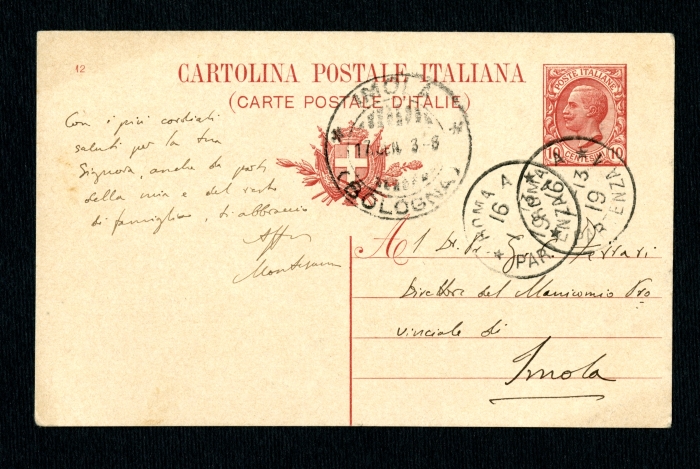 12
CARTOLINA POSTALE ITALIANA
(CARTE POSTALE D'ITALIE)
POSTE ITALIANE
10 CENTESIMI 10
IMOLA
17 GEN 13-8
(BOLOGNA)
ROMA
16
PARTENZA
13
19
PARTENZA
Con i più cordiali
saluti per la tua
Signora, anche da parte
della mia e del resto
di famiglia, ti abbraccio
Aff
Al Dr. Pr. G. Ferrari
Direttore del Manicomio Pro
vinciale di
Imola